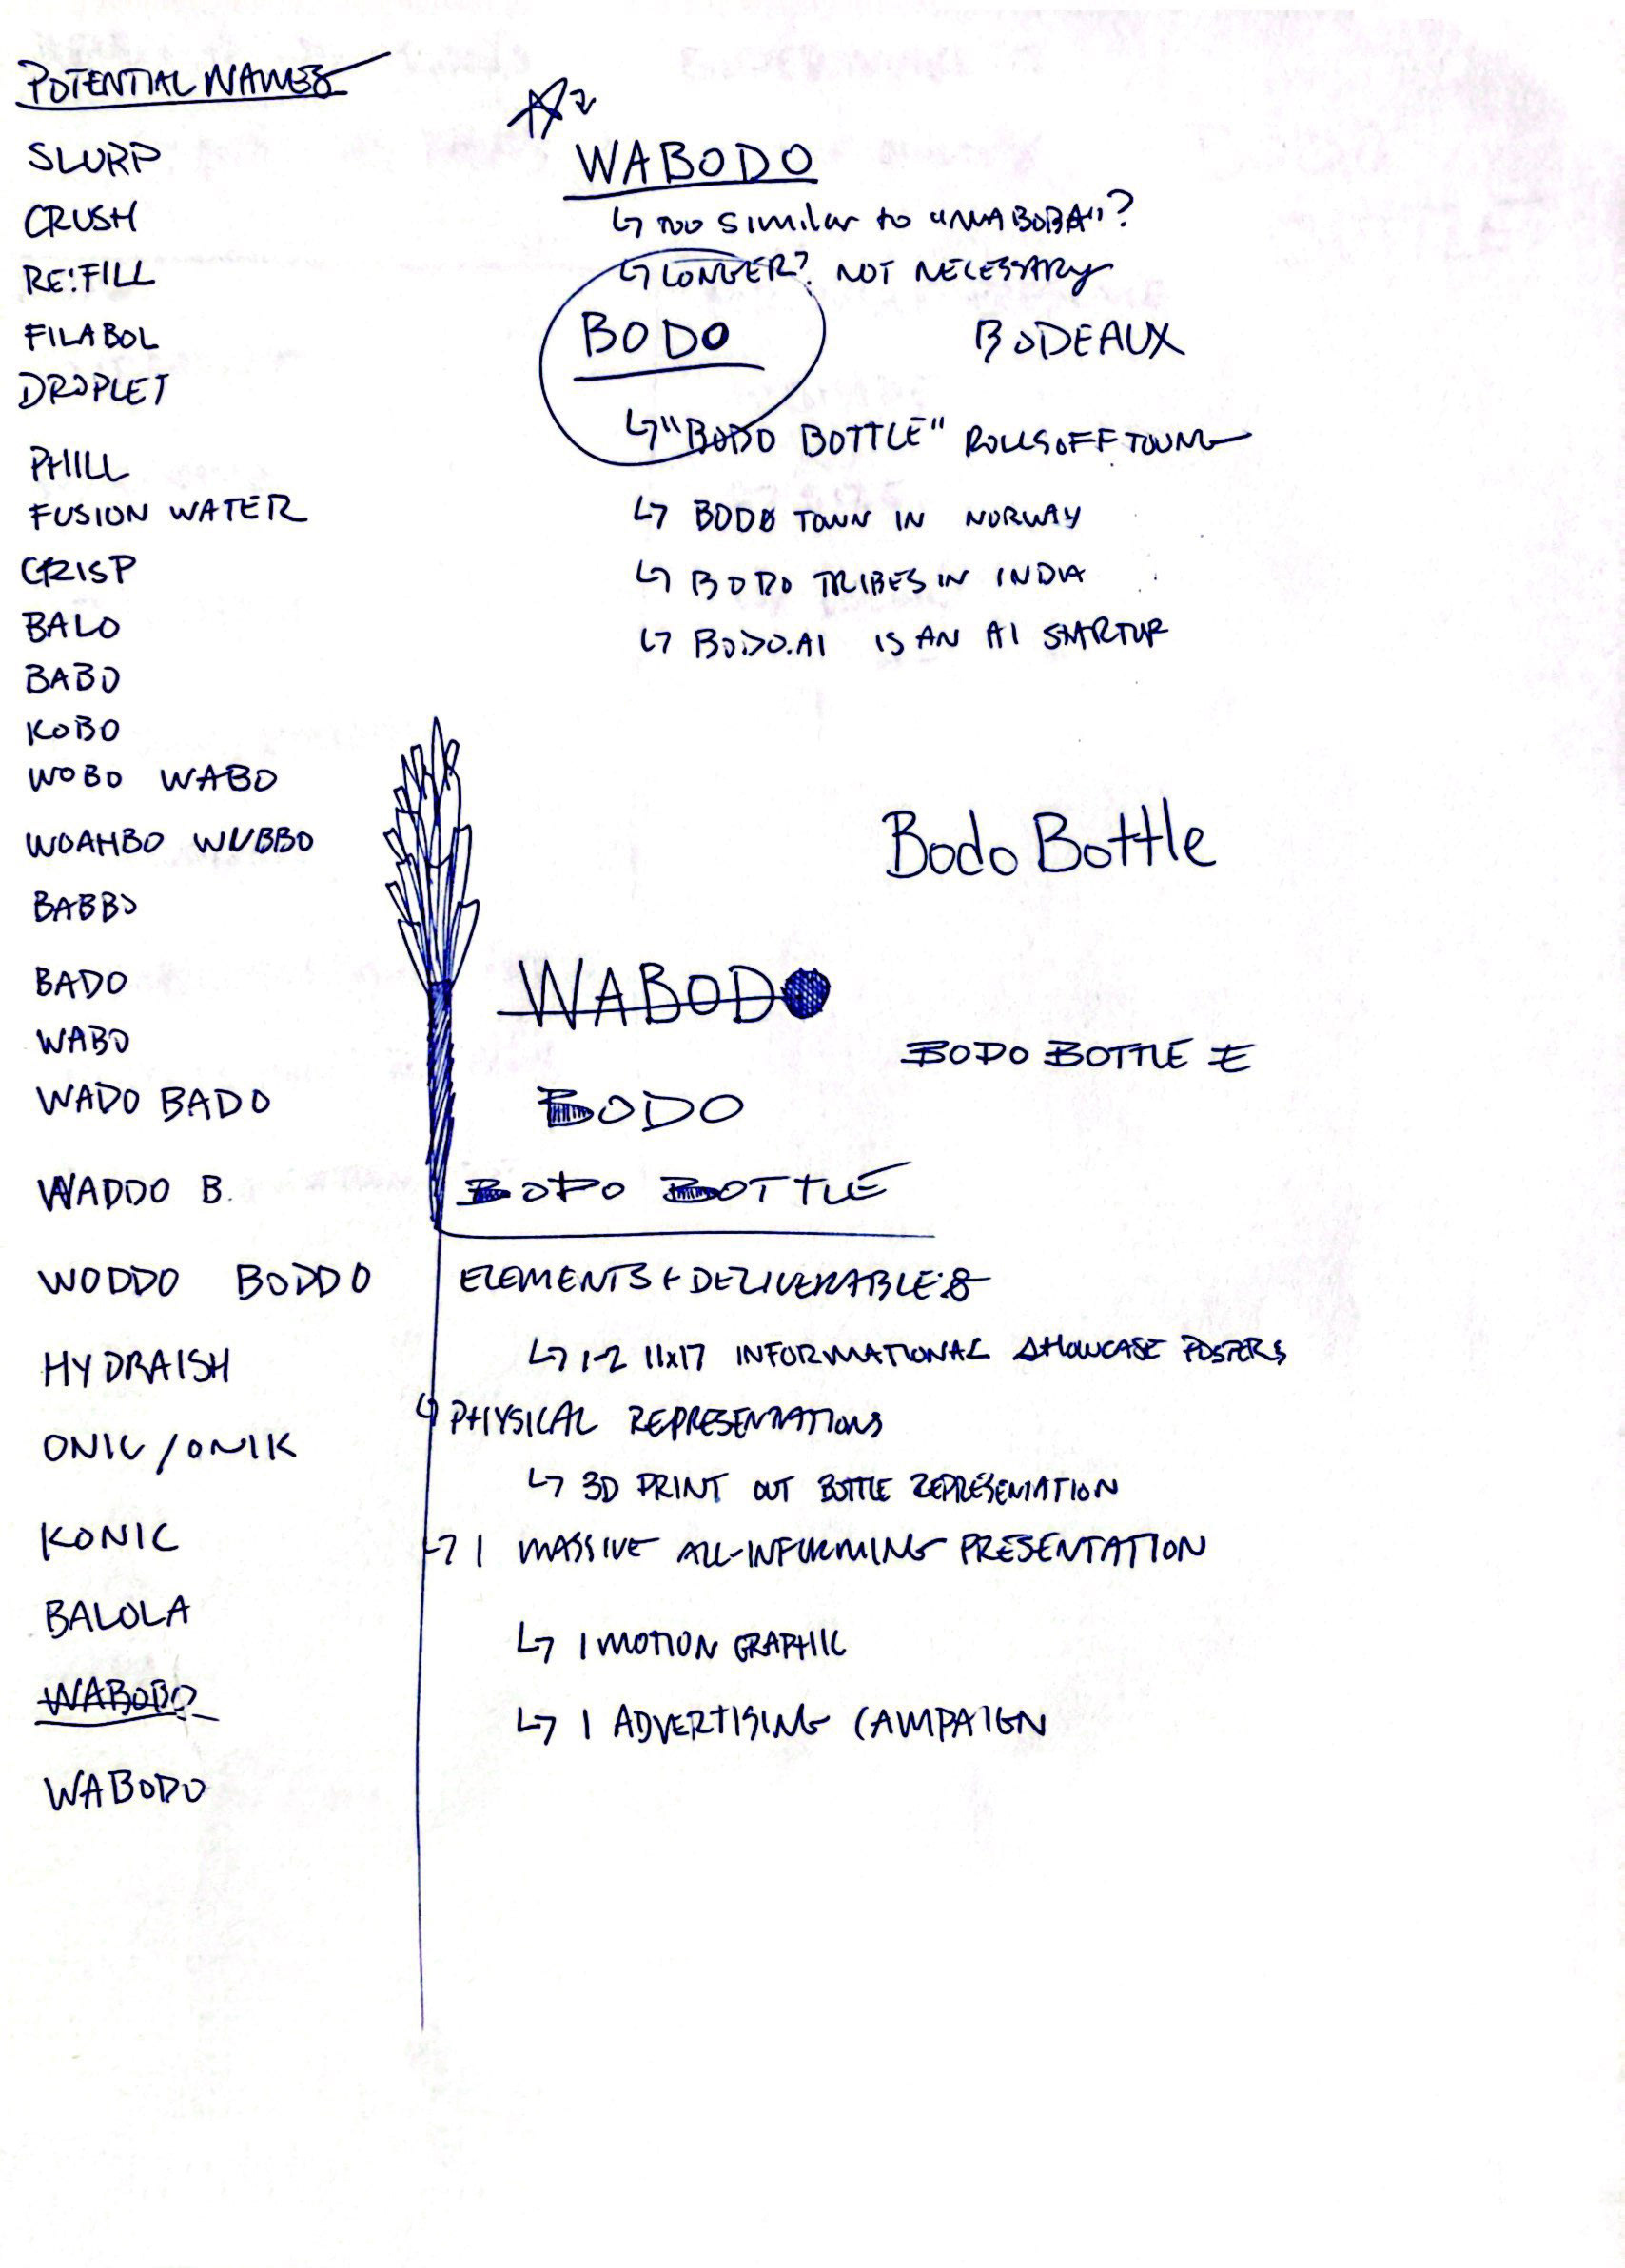 POTENTIAL NAMES
SLURP
CRUSH
RE:FILL
FILABOL
DROPLET
PHILL
FUSION WATER
CRISP
BALO
BABO
KOBO
WOBO WABO
WOAHBO WUBBO
BABBO
BADO
WABO
WADO BADO
WADDO B.
WODDO BODDO
HYDRAISH
ONIC/ONIK
KONIC
BALOLA
WABOBO
WABODO
WABODO
↳ too similar to "WABOBA"?
↳ LONGER? NOT NECESSARY
BODO
BODEAUX
↳ "BODO BOTTLE" ROLLS OFF TOUNG
↳ BODØ TOWN IN NORWAY
↳ BODO TRIBES IN INDIA
↳ BODO.AI IS AN AI STARTUP
Bodo Bottle
WABODO
BODO BOTTLE E
BODO
BODO BOTTLE
ELEMENTS + DELIVERABLES
↳ 1-2 11x17 INFORMATIONAL SHOWCASE POSTERS
↳ PHYSICAL REPRESENTATIONS
↳ 3D PRINT OUT BOTTLE REPRESENTATION
↳ 1 MASSIVE ALL-INFORMING PRESENTATION
↳ 1 MOTION GRAPHIC
↳ 1 ADVERTISING CAMPAIGN